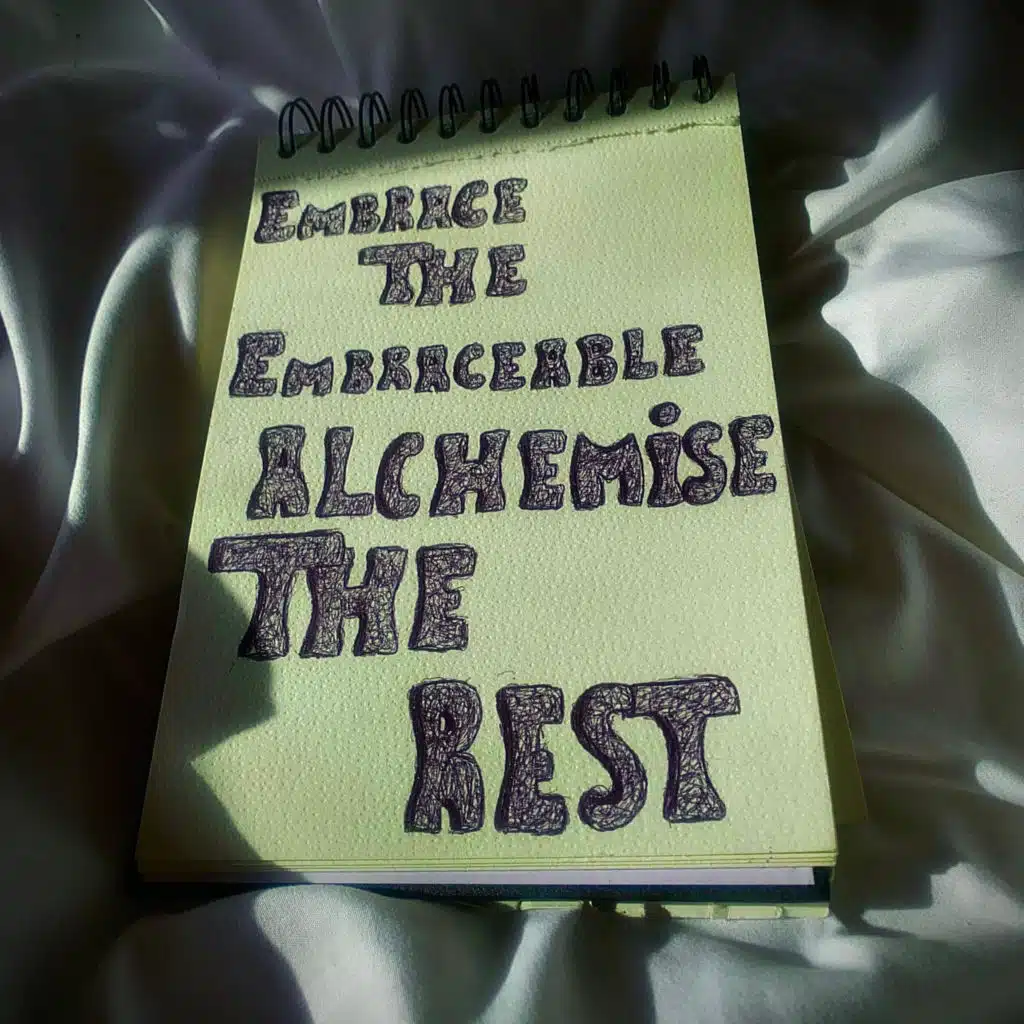 EMBRACE
THE
EMBRACEABLE
ALCHEMiSE
THE
REST